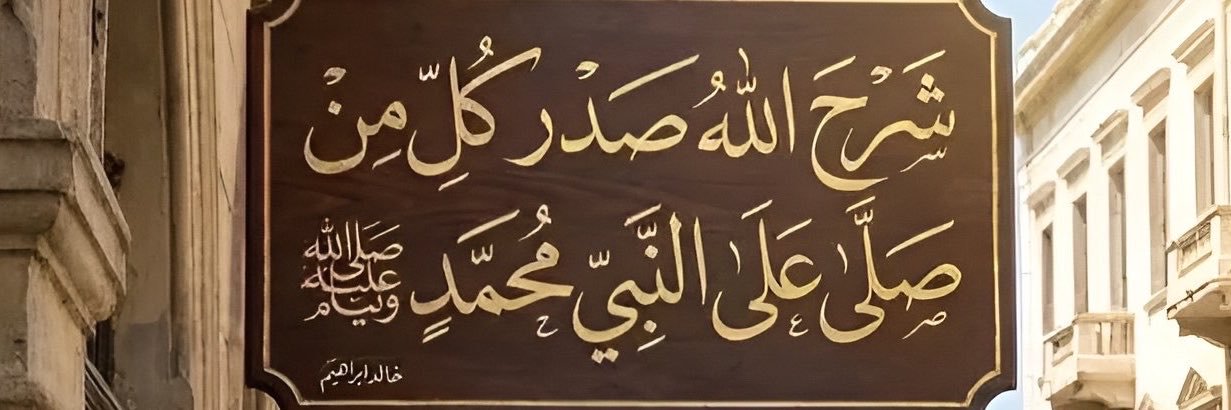 شَرَحَ اللهُ صَدْر كُلِّ مِنْ
صَلَّى عَلَى النَّبِيِّ مُحَمَّدٍ صلى الله عليه وسلم
خالد ابراهيم